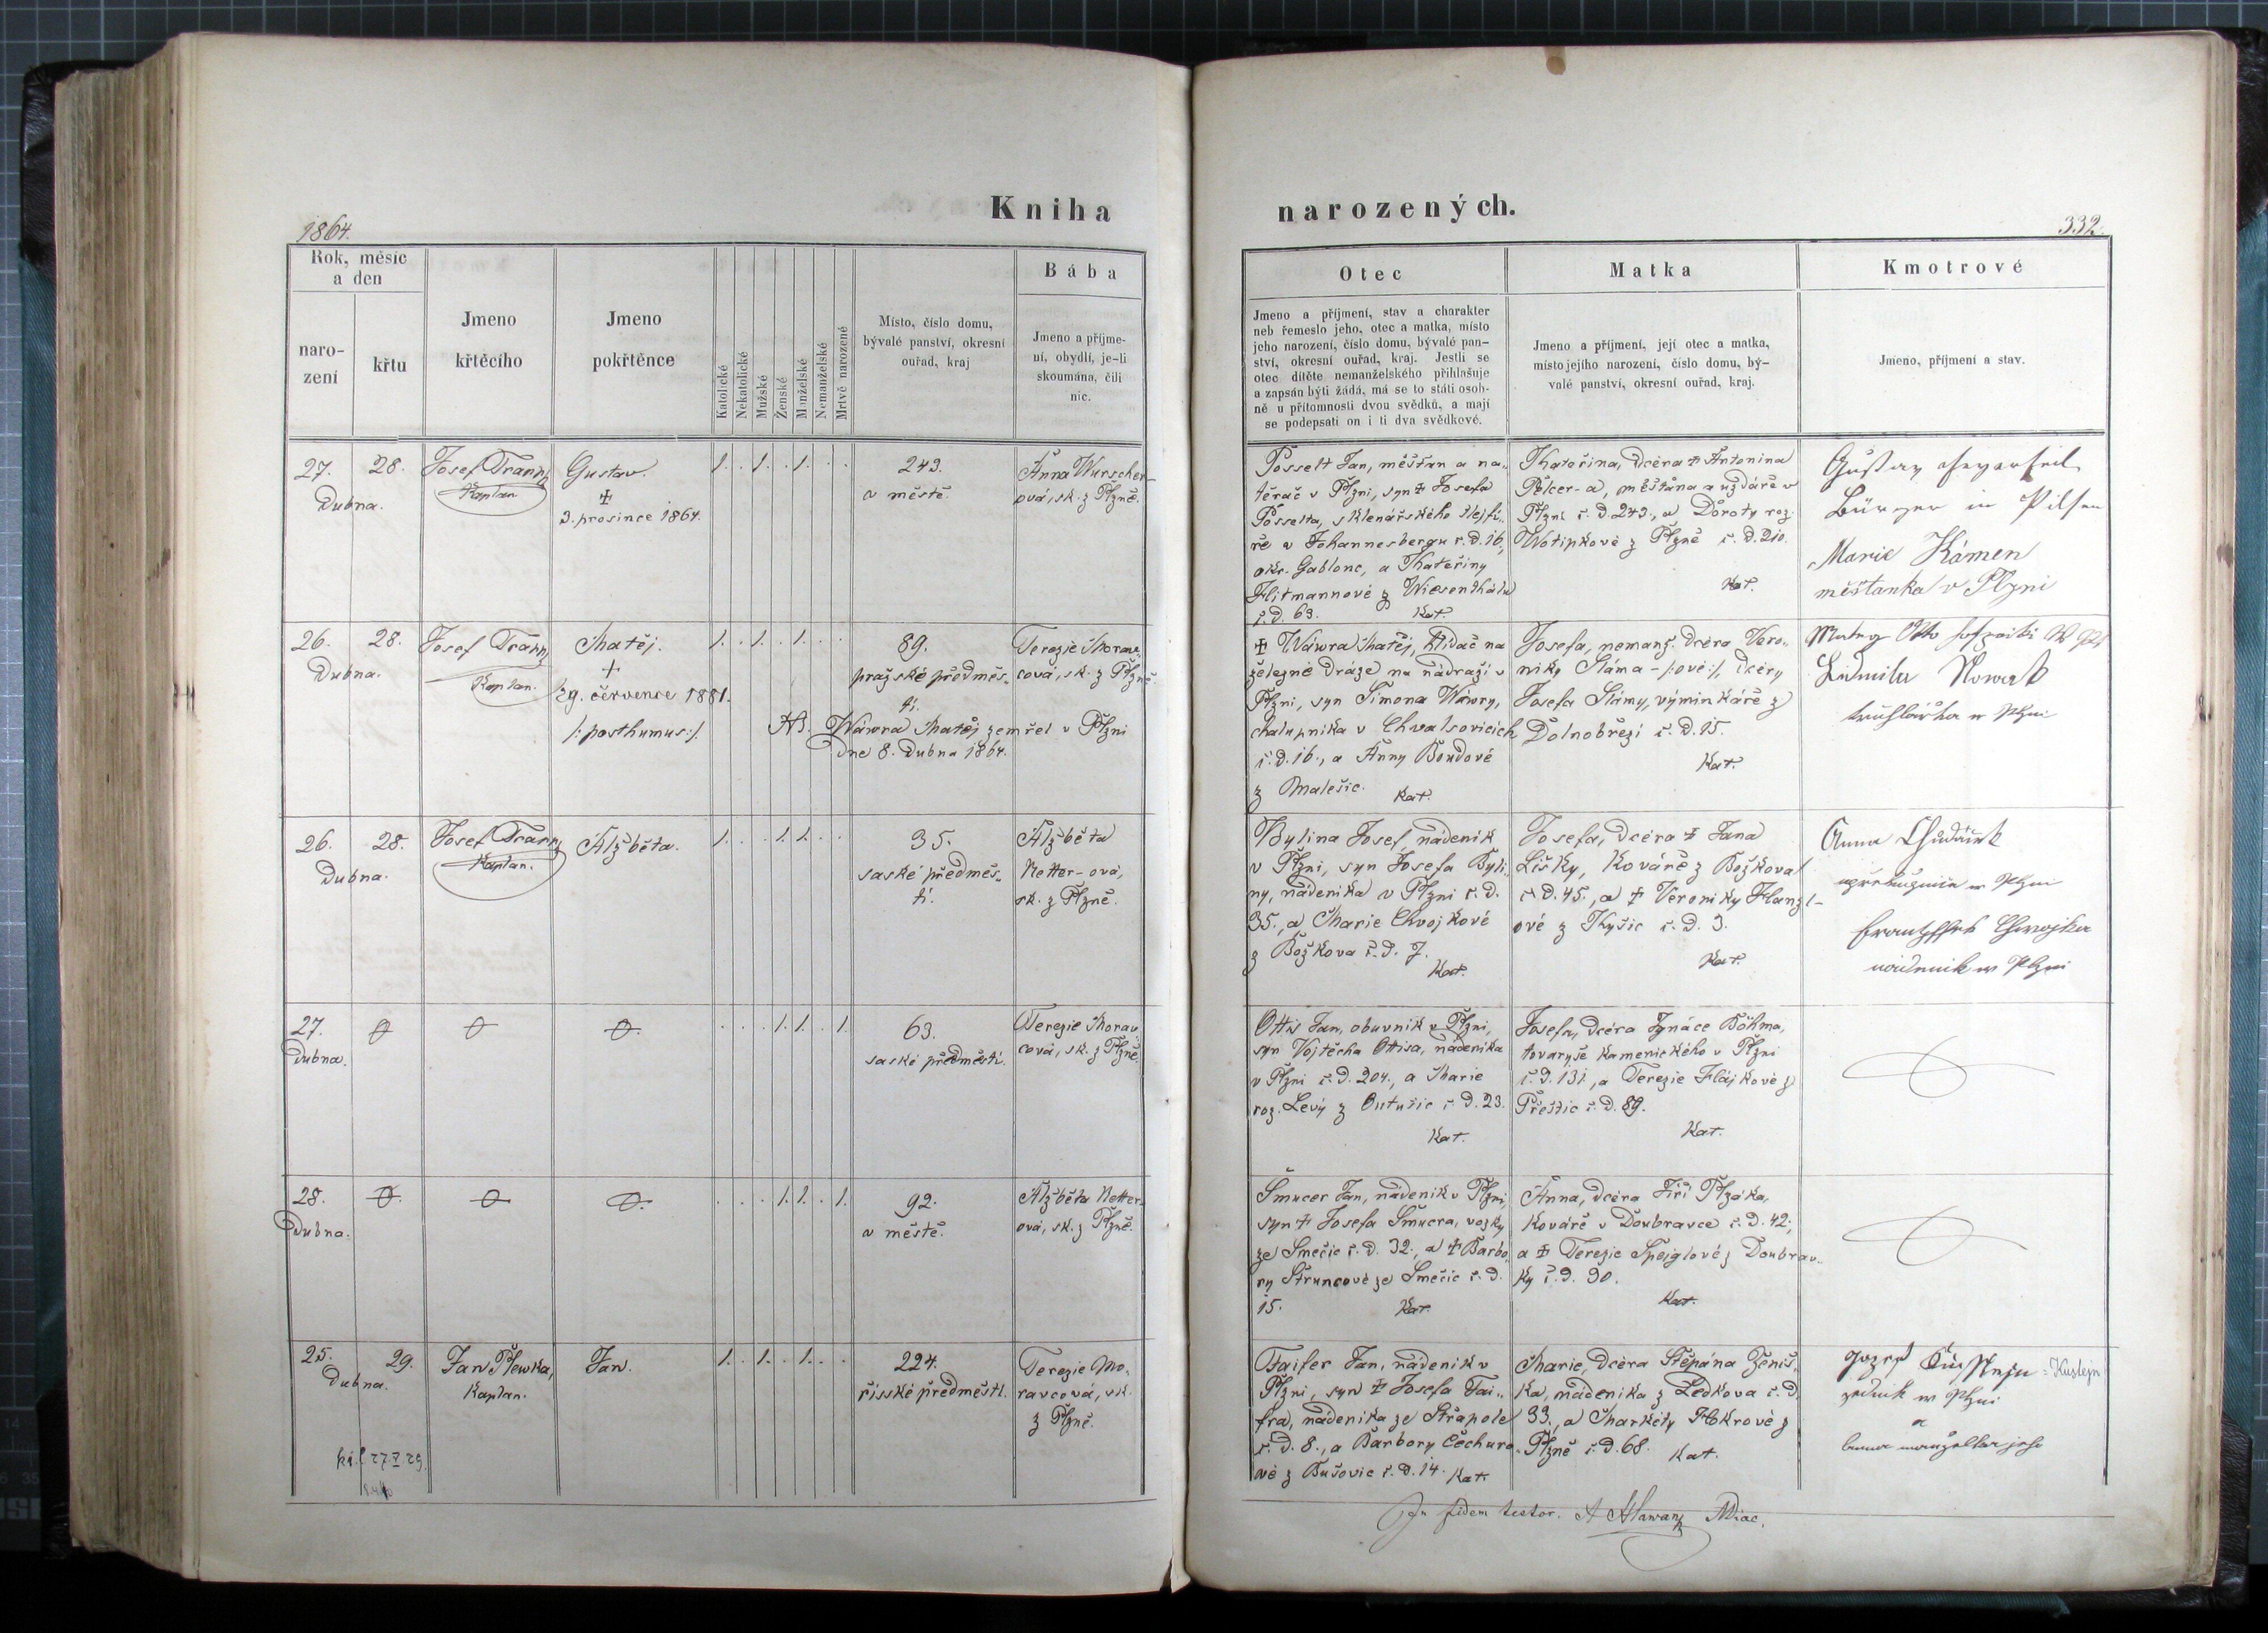 Kniha
narozených.
1864.
332.
Rok, měsíc
a den
naro-
zení
křtu
Jmeno
křtěcího
Jmeno
pokřtěnce
Katolické
Nekatolické
Mužské
Ženské
Manželské
Nemanželské
Mrtvě narozené
Místo, číslo domu,
bývalé panství, okresní
ouřad, kraj
Bába
Jmeno a příjme-
ní, obydlí, je-li
skoumána, čili
nic.
Otec
Jmeno a příjmení, stav a charakter
neb řemeslo jeho, otec a matka, místo
jeho narození, číslo domu, bývalé pan-
ství, okresní ouřad, kraj. Jestli se
otec dítěte nemanželského přihlašuje
a zapsán býti žádá, má se to státi osob-
ně u přítomnosti dvou svědků, a mají
se podepsati on i ti dva svědkové.
Matka
Jmeno a příjmení, její otec a matka,
místo jejího narození, číslo domu, bý-
valé panství, okresní ouřad, kraj.
Kmotrové
Jmeno, příjmení a stav.
27. 28.
Dubna.
Josef Tranz
Kaplan
Gustav.
‡
3. prosince 1864.
1. . 1. . 1. . .
243.
v městě.
Anna Wurscher-
ová, sk. z Plzně.
Posselt Jan, měšťan a na-
těrač v Plzni, syn ‡ Josefa
Posselta, sklenářského šlejfí-
ře v Johannesbergu č. d. 16,
okr. Gablonc, a Kateřiny
Hlitmannové z Wiesenthálu
č. d. 63. Kat.
Kateřina, dcera ‡ Antonina
Pelcer-a, měšťana a uzdáře v
Plzni č. d. 243., a Doroty roz.
Wotipkové z Plzně č. d. 210.
Kat.
Bürger in Pilsen
Marie Kámen
měšťanka v Plzni
26. 28.
Dubna.
Josef Tranz
Kaplan.
Matěj.
+
29. července 1881.
/:posthumus:/.
1. . 1. . 1. . .
89.
pražské předměs-
tí.
NB. Wáwra Matěj zemřel v Plzni
dne 8. Dubna 1864.
Terezie Morav-
cová, sk. z Plzně.
‡ Wáwra Matěj, hlídač na
železné dráze na nádraží v
Plzni, syn Šimona Wáwry,
chalupníka v Chvalsovicích
č. d. 16., a Anny Boudové
z Malešic. Kat.
Josefa, nemanž. dcera Vero-
niky Sláma-/:ové:/, dcery
Josefa Slámy, výminkáře z
Dolnobřezí č. d. 15.
Kat.
Ludmila Nowak
truhlářka w Plzni
26. 28.
Dubna.
Josef Tranz
Kaplan.
Alžběta.
1. . . 1. 1. . .
35.
saské předměs-
tí.
Alžběta
Netter-ová,
sk. z Plzně.
Bylina Josef, nádeník
v Plzni, syn Josefa Byli-
ny, nádeníka v Plzni č. d.
35., a Marie Chvojkové
z Božkova č. d. 7.
Kat.
Josefa, dcera ‡ Jana
Lišky, Kováře z Božkova
č. d. 45., a ‡ Veroniky Hanzl-
ové z Kyšic č. d. 3.
Kat.
Anna
w Plzni
Chwojka
nádenik w Plzni
27.
Dubna.
. . . 1. 1. . 1.
63.
saské předměstí.
Terezie Morav-
cová, sk. z Plzně.
Ottis Jan, obuvník v Plzni,
syn Vojtěcha Ottisa, nádeníka
v Plzni č. d. 204., a Marie
roz. Levý z Outušic č. d. 23.
Kat.
Josefa, dcera Ignáce Böhma,
tovaryše kamenického v Plzni
č. d. 131., a Terezie Hájkové z
Přeštic č. d. 89.
Kat.
28.
Dubna.
. . . 1. 1. . 1.
92.
v městě.
Alžběta Netter-
ová, sk. z Plzně.
Šmucer Jan, nádeník v Plzni,
syn ‡ Josefa Šmucra, vozky
ze Smečic č. d. 32., a ‡ Barbo-
ry Struncové ze Smečic č. d.
15. Kat.
Anna, dcera Jiří Plzáka,
Kováře v Doubravce č. d. 42.,
a ‡ Terezie Špeiglové z Doubrav-
ky č. d. 30.
Kat.
25. 29.
Dubna.
Jan Plewka,
Kaplan.
Jan.
1. . 1. . 1. . .
224.
říšské předměstí.
Terezie Mo-
ravcová, sk.
z Plzně.
Taifer Jan, nádeník v
Plzni, syn ‡ Josefa Tai-
fra, nádeníka ze Střapole
č. d. 8., a Barbory Čechuro-
vé z Bušovic č. d. 14. Kat.
Marie, dcera Štěpána Ženíš-
ka, nádeníka z Ledkova č. d.
33., a Markéty Hokrové z
Plzně č. d. 68. Kat.
Kustejn
zedník w Plzni
a
manželka jeho
In fidem testor.